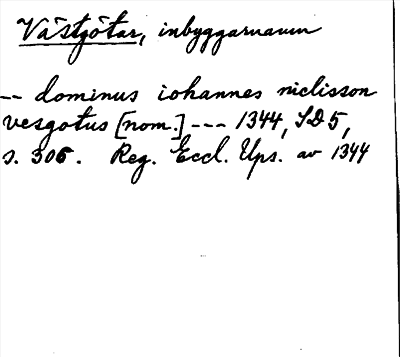 Västgötar, inbyggarnamn
-- dominus iohannes niclisson
vesgotus [nom.] --- 1344, SD 5,
s. 306. Reg. Eccl. Ups. av 1344